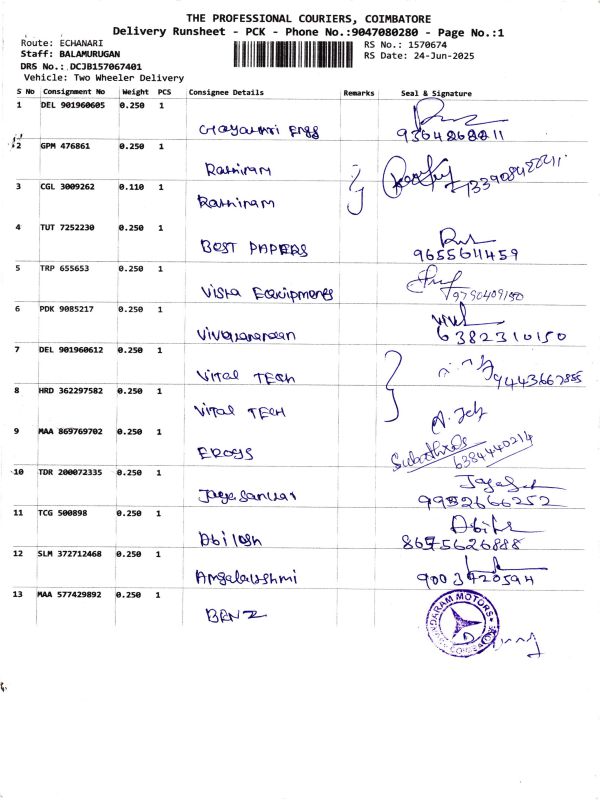 THE PROFESSIONAL COURIERS, COIMBATORE
Delivery Runsheet - PCK - Phone No.:9047080280 - Page No.:1
Route: ECHANARI
RS No.: 1570674
Staff: BALAMURUGAN
RS Date: 24-Jun-2025
DRS No.: DCJB157067401
Vehicle: Two Wheeler Delivery
S No Consignment No Weight PCS Consignee Details Remarks Seal & Signature
1 DEL 901960605 0.250 1
2 GPM 476861 0.250 1
Rathiram
3 CGL 3009262 0.110 1
Rathiram
4 TUT 7252230 0.250 1
BEST PAPERS
9655611459
5 TRP 655653 0.250 1
Vista Equipments
9790409150
6 PDK 9085217 0.250 1
6382310150
7 DEL 901960612 0.250 1
VITal TECH
9443667885
8 HRD 362297582 0.250 1
VITal TECH
9 MAA 869769702 0.250 1
EROSS
6384440214
10 TDR 200072335 0.250 1
9952666252
11 TCG 500898 0.250 1
Abilash
8675626888
12 SLM 372712468 0.250 1
Angalalushmi
9003420594
13 MAA 577429892 0.250 1
BENZ